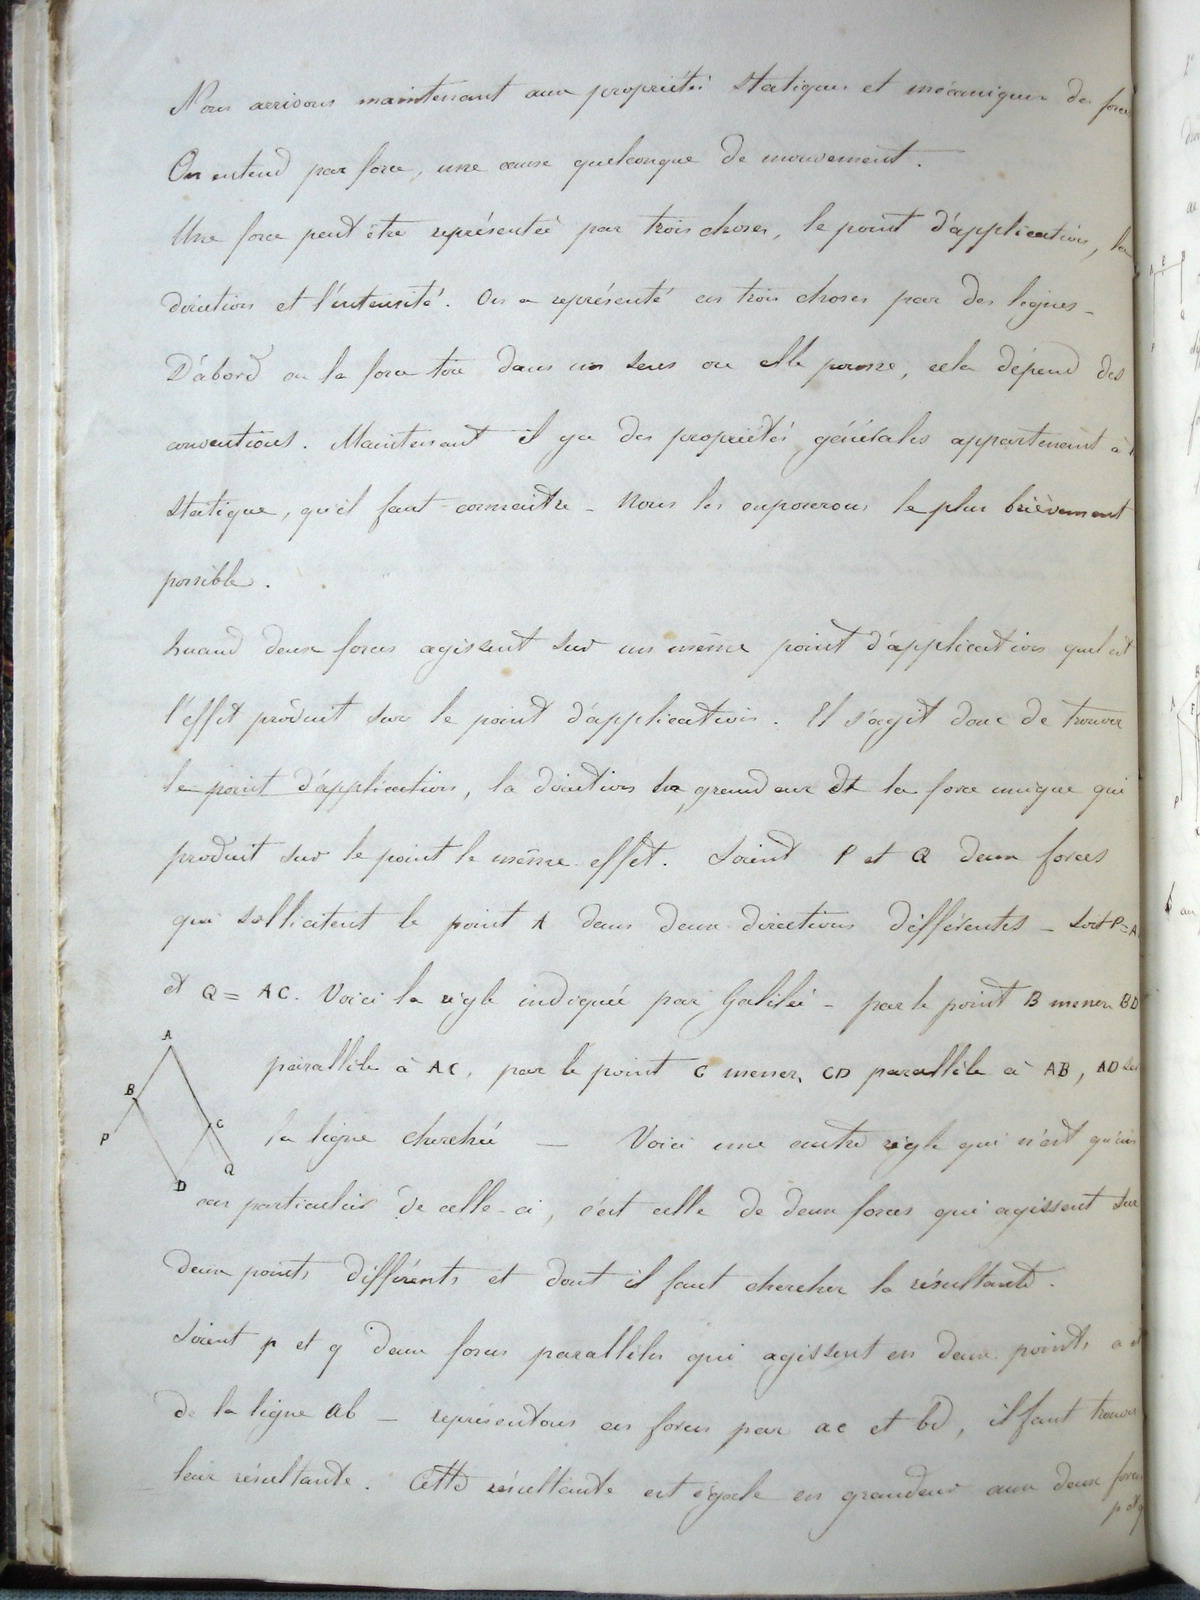 Nous arrivons maintenant aux propriétés statiques et mécaniques des forces
On entend par force, une cause quelconque de mouvement.
Une force peut être représentée par trois choses, le point d'application, la
direction et l'intensité. On a représenté ces trois choses par des lignes -
D'abord ou la force tire dans un sens ou elle pousse, cela dépend des
conventions. Maintenant il y a des propriétés générales appartenant à
statique, qu'il faut connaitre - Nous les exposerons le plus brièvement
possible.
Quand deux forces agissent sur un même point d'application quel est
l'effet produit sur le point d'application. Il s'agit donc de trouver
le point d'application, la direction la grandeur et la force unique qui
produit sur le point le même effet. Soient P et Q deux forces
qui sollicitent le point A dans deux directions différentes - Soit P = A
et Q = AC. Voici la règle indiquée par Galilée - par le point B mener BD
parallèle à AC, par le point C mener CD parallèle à AB, AD sera
la ligne cherchée — Voici une autre règle qui n'est qu'un
cas particulier de celle-ci, c'est celle de deux forces qui agissent sur
deux points différents et dont il faut chercher la résultante.
Soient p et q deux forces parallèles qui agissent en deux points a et
de la ligne ab — représentons ces forces par ac et bd, il faut trouver
leur résultante. Cette résultante est égale en grandeur aux deux forces
p et q
A
B
P
C
Q
D